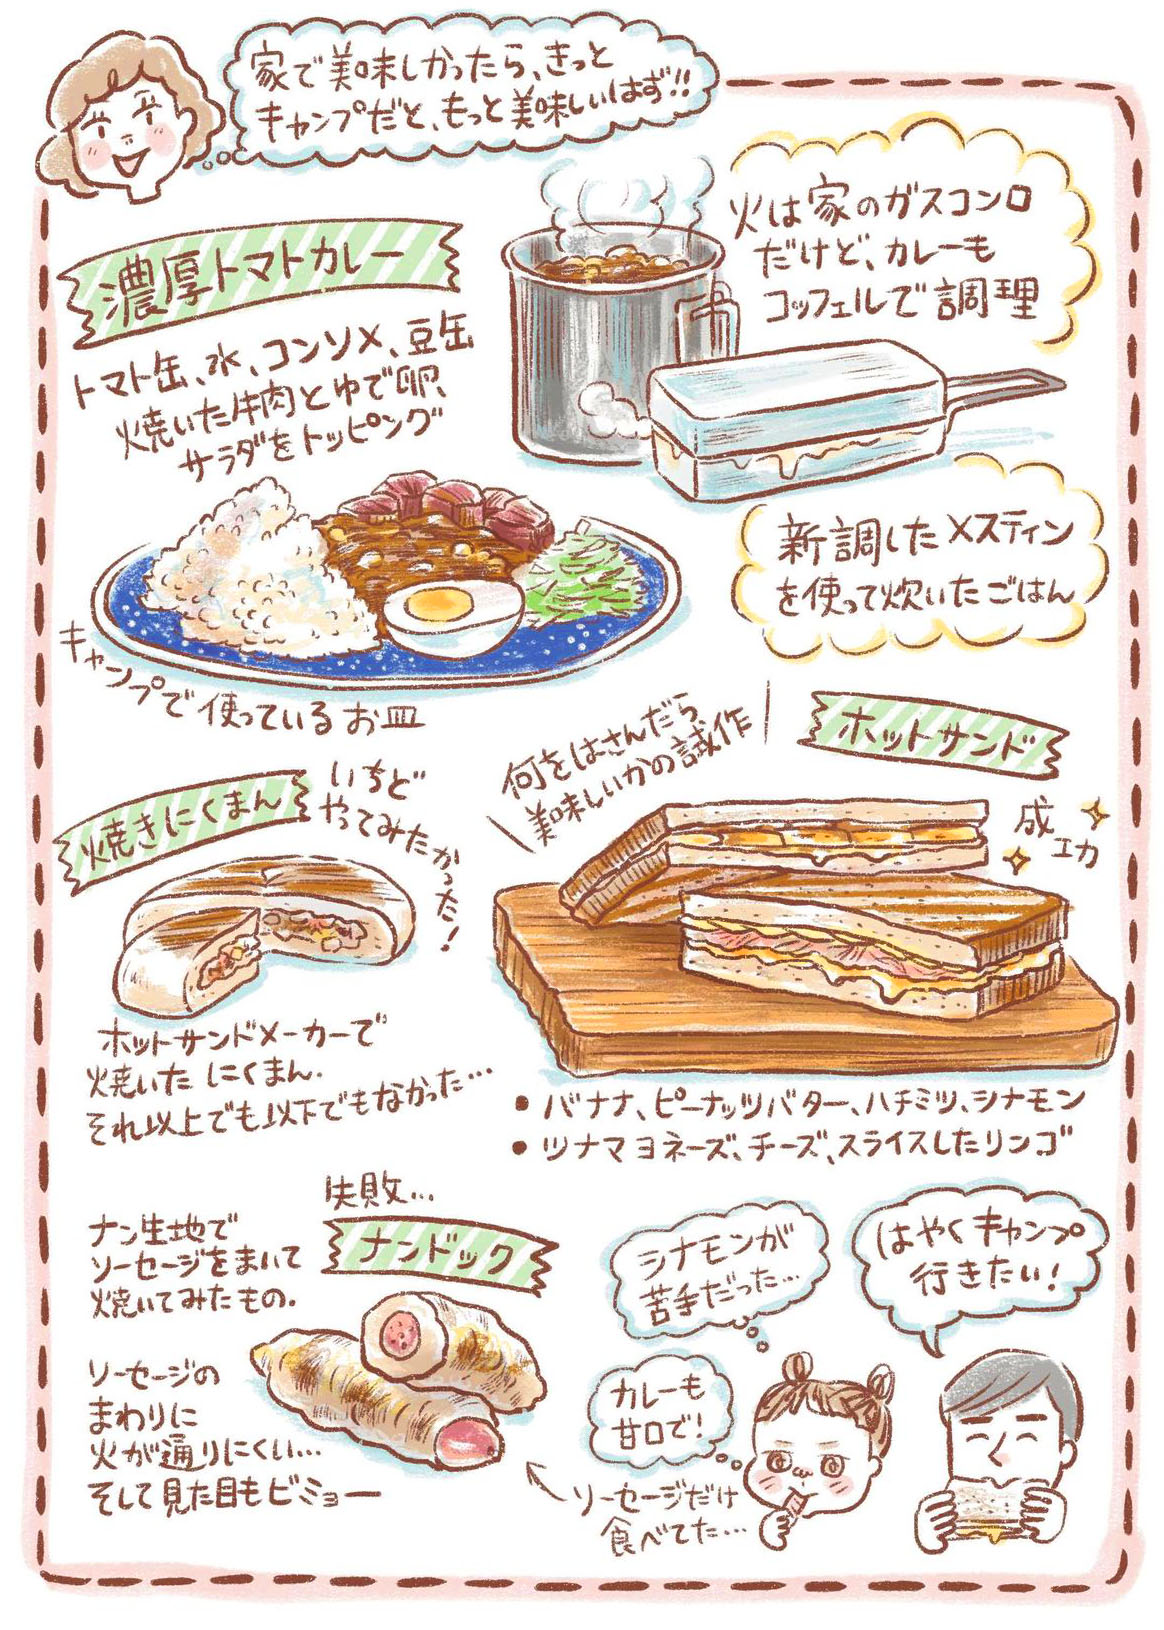 家で美味しかったら、きっと
キャンプだと、もっと美味しいはず!!
濃厚トマトカレー
トマト缶、水、コンソメ、豆缶
焼いた牛肉とゆで卵、
サラダをトッピング
火は家のガスコンロ
だけど、カレーも
コッフェルで調理
新調したメスティン
を使って炊いたごはん
キャンプで使っているお皿
何をはさんだら
美味しいかの試作
ホットサンド
成功
焼きにくまん
いちど
やってみたかった!
ホットサンドメーカーで
焼いたにくまん.
それ以上でも以下でもなかった…
• バナナ、ピーナッツバター、ハチミツ、シナモン
• ツナマヨネーズ、チーズ、スライスしたリンゴ
失敗…
ナンドック
ナン生地で
ソーセージをまいて
焼いてみたもの.
ソーセージの
まわりに
火が通りにくい…
そして見た目もビミョー
シナモンが
苦手だった…
カレーも
甘口で!
ソーセージだけ
食べてた…
はやくキャンプ
行きたい!